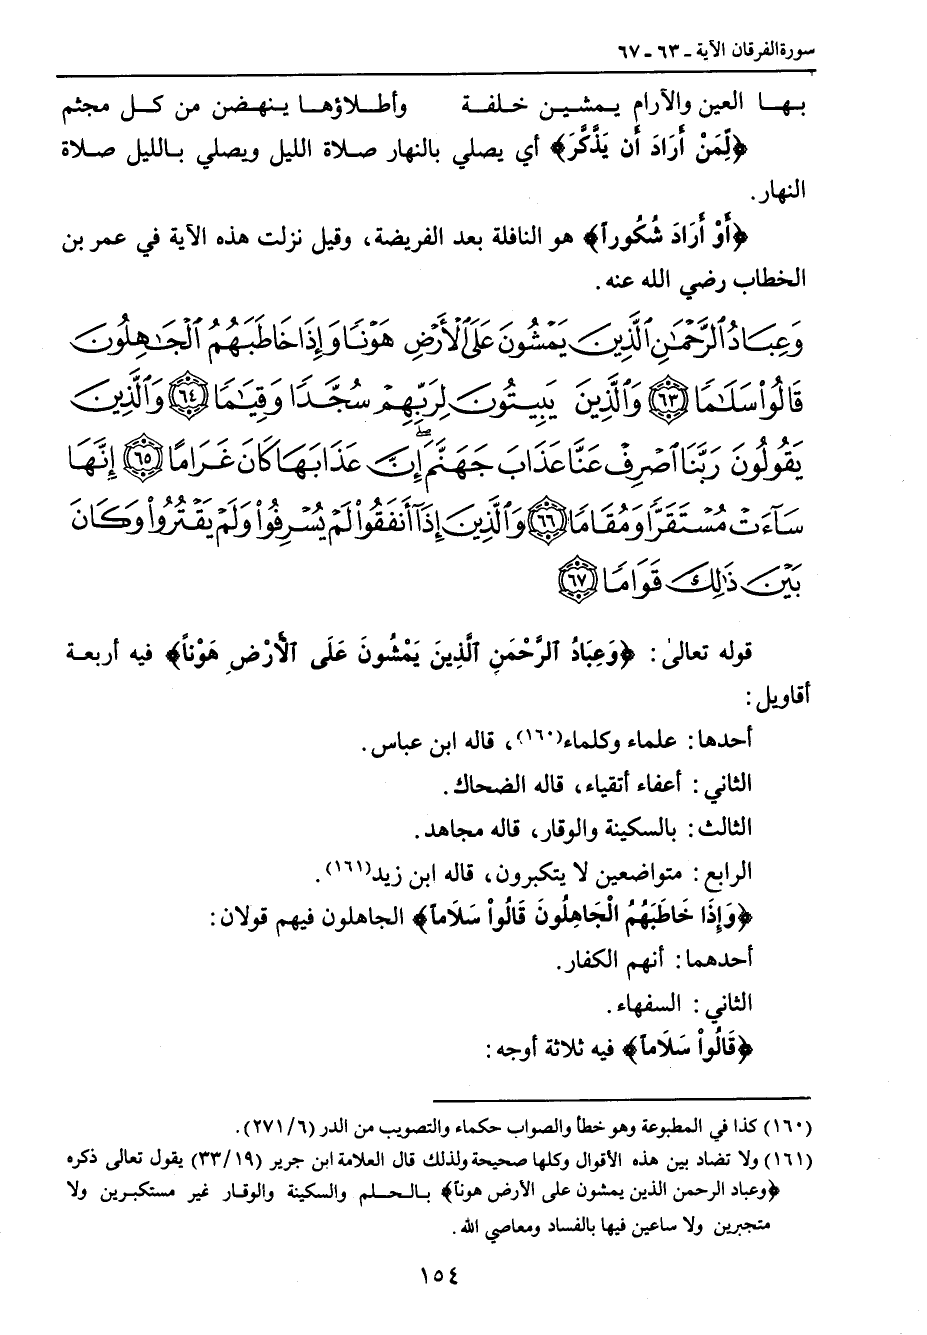 سورة الفرقان الآية ـ ٦٣ ـ ٦٧
بها العين والآرام يمشين خلفة وأطلاؤها ينهضن من كل مجثم
﴿لِّمَنْ أَرَادَ أَن يَذَّكَّرَ﴾ أي يصلي بالنهار صلاة الليل ويصلي بالليل صلاة
النهار.
﴿أَوْ أَرَادَ شُكُوراً﴾ هو النافلة بعد الفريضة، وقيل نزلت هذه الآية في عمر بن
الخطاب رضي الله عنه.
وَعِبَادُ ٱلرَّحْمَٰنِ ٱلَّذِينَ يَمْشُونَ عَلَى ٱلْأَرْضِ هَوْنًا وَإِذَا خَاطَبَهُمُ ٱلْجَٰهِلُونَ
قَالُوا۟ سَلَٰمًا ﴿٦٣﴾ وَٱلَّذِينَ يَبِيتُونَ لِرَبِّهِمْ سُجَّدًا وَقِيَٰمًا ﴿٦٤﴾ وَٱلَّذِينَ
يَقُولُونَ رَبَّنَا ٱصْرِفْ عَنَّا عَذَابَ جَهَنَّمَ ۖ إِنَّ عَذَابَهَا كَانَ غَرَامًا ﴿٦٥﴾ إِنَّهَا
سَآءَتْ مُسْتَقَرًّا وَمُقَامًا ﴿٦٦﴾ وَٱلَّذِينَ إِذَآ أَنفَقُوا۟ لَمْ يُسْرِفُوا۟ وَلَمْ يَقْتُرُوا۟ وَكَانَ
بَيْنَ ذَٰلِكَ قَوَامًا ﴿٦٧﴾
قوله تعالىٰ: ﴿وَعِبَادُ الرَّحْمَنِ الَّذِينَ يَمْشُونَ عَلَى الْأَرْضِ هَوْناً﴾ فيه أربعة
أقاويل:
أحدها: علماء وكلماء(١٦٠)، قاله ابن عباس.
الثاني: أعفاء أتقياء، قاله الضحاك.
الثالث: بالسكينة والوقار، قاله مجاهد.
الرابع: متواضعين لا يتكبرون، قاله ابن زيد(١٦١).
﴿وَإِذَا خَاطَبَهُمُ الْجَاهِلُونَ قَالُواْ سَلَاماً﴾ الجاهلون فيهم قولان:
أحدهما: أنهم الكفار.
الثاني: السفهاء.
﴿قَالُواْ سَلَاماً﴾ فيه ثلاثة أوجه:
(١٦٠) كذا في المطبوعة وهو خطأ والصواب حكماء والتصويب من الدر (٦/٢٧١).
(١٦١) ولا تضاد بين هذه الأقوال وكلها صحيحة ولذلك قال العلامة ابن جرير (١٩/٣٣) يقول تعالى ذكره
﴿وعباد الرحمن الذين يمشون على الأرض هوناً﴾ بالحلم والسكينة والوقار غير مستكبرين ولا
متجبرين ولا ساعين فيها بالفساد ومعاصي الله.
١٥٤